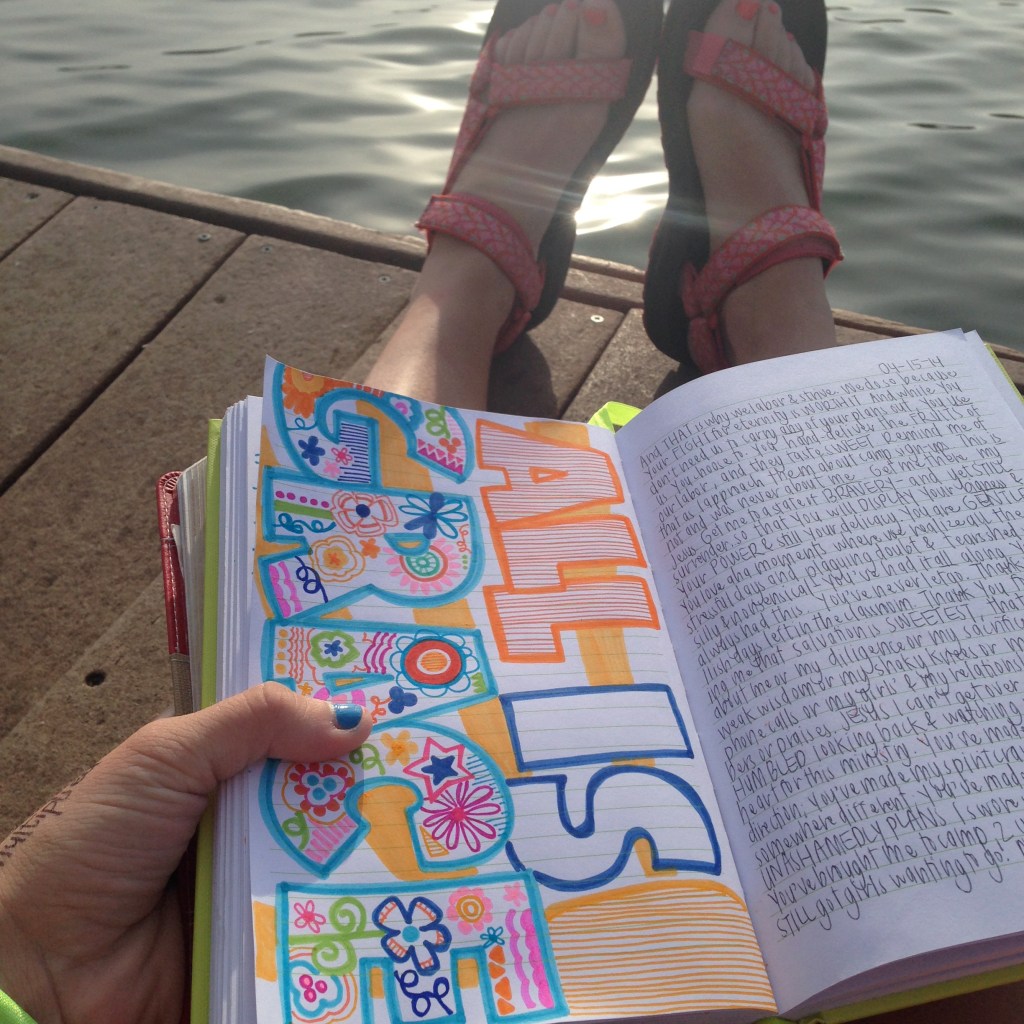 ALL IS
GRACE
04-15-14
And THAT is why we labor & strive. We do so because
Your FIGHT for eternity is WORTH it. And while You
don't need us to carry any of your plans out, in the
while You choose to, You hand-deliver the FRUITS of
our labor... and they taste so SWEET. Remind me of
that as I approach them about camp sign-up. This is
not and was never about me. Get me there, my
Jesus. Get me past pure BRAVERY and let STILL
surrender, so that You will UPON Your
Your POWER & still Your You are GENTLE
You love and moments where we realize all the
stressful days and inquiring doubt & tears shed
silly & hypothetical "you've had it all along, you
always had this. You've never let go. Thank
ish-days left in the classroom. Thank You for
ing me that salvation is SWEETEST &
about me or my diligence or my sacrifice
weak wisdom or my shaky knees or
phone calls or my girls & my relationship
bers or praises. JESUS I can't get over
HUMBLED looking back & watching
heart for this ministry. You've made
direction. You've made my spiritual
somewhere different. You've made
UNASHAMEDLY PLANS is more
You've brought me to camp. 2
STILL got girls wanting to go!